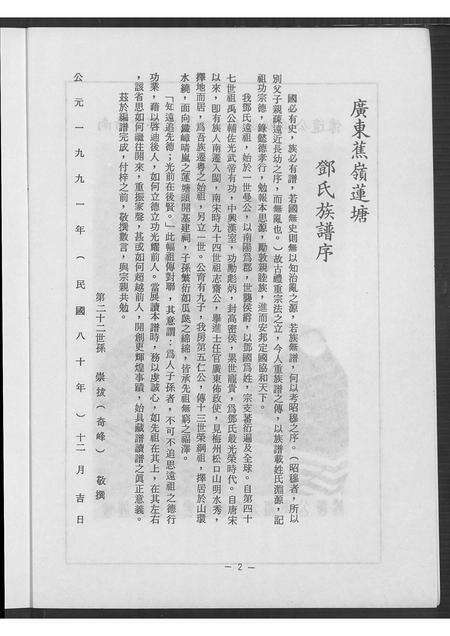 廣東蕉嶺蓮塘
鄧氏族譜序
國必有史，族必有譜，若國無史則無以知治亂之源，若族無譜，何以考昭穆之序。（昭穆者，所以
別父子親疏遠近長幼之序，而無亂也。）故古禮重宗法之立，今人重族譜之傳，以族譜載姓氏淵源，記
祖功宗德，錄懿德孝行，勉報本思源，勵敦親睦族，進而安邦定國協和天下。
我鄧氏遠祖，始於一世曼公，以南陽爲郡，世襲侯爵，以鄧國爲姓，宗支蕃衍遍及全球。自第四十
七世祖禹公輔佐光武帝有功，中興漢室，功勳彪炳，封高密侯，累世寵貴，爲鄧氏最光榮時代。自唐宋
以來，即有族人南遷入閩，南宋時九十四世祖志齋公，舉進士任官廣東佈政使，見梅州松口山明水秀，
擇地而居，爲吾族遷粤之始祖，另立一世。公育有九子，我房第五仁公，傳十三世榮綱祖，擇居於山環
水繞，面向鐵嶂晴嵐之蓮塘頭開基建祠，子孫繁衍如瓜瓞之綿綿，皆承先祖無窮之福澤。
「知遠追先德；光前在後賢。」此幅祖傳對聯，其意謂：爲人子孫者，不可不追思遠祖之德行
功業，藉以啓迪後人，如何立德立功光耀前人。當展讀本譜時，務以虔誠心，如先祖在其上，在其左右
，該省思如何繼往開來，重振家聲，甚或如何超越前人，開創更輝煌事蹟，始具藏譜讀譜之眞正意義。
茲於編譜完成，付梓之前，敬撰數言，與宗親共勉。
第二十二世孫　崇拔（奇峰）　敬撰
公元一九九一年（民國八十年）十二月吉日
— 2 —